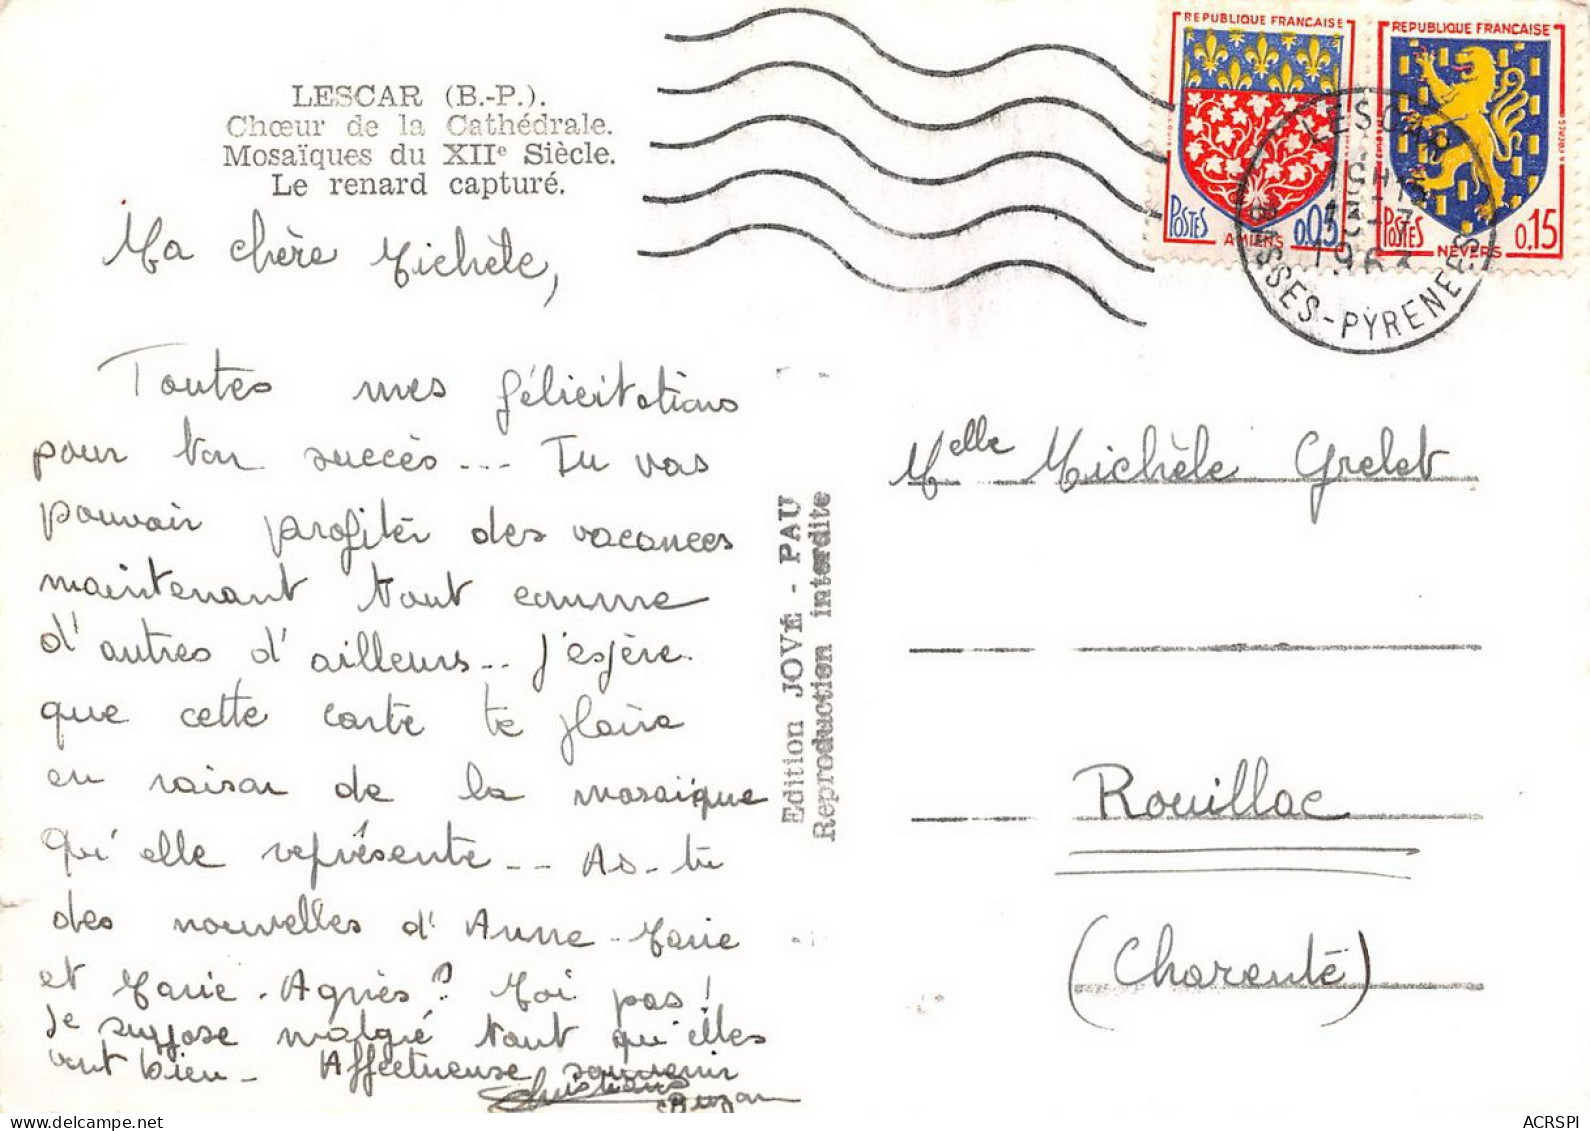 LESCAR (B.-P.).
Chœur de la Cathédrale.
Mosaïques du XIIe Siècle.
Le renard capturé.
Ma chère Michèle,
Toutes mes félicitations
pour ton succès... Tu vas
pouvoir profiter des vacances
maintenant tout comme
d'autres d'ailleurs.. J'espère
que cette carte te plaira
en raison de la mosaïque
qu'elle représente.. As-tu
des nouvelles d'Anne-Marie
et Marie-Agnès? Moi pas!
Je suppose malgré tout qu'elles
vont bien - Affectueuse souvenir
Christiane
Edition JOVÉ - PAU
Reproduction interdite
REPUBLIQUE FRANÇAISE
POSTES
AMIENS
0.05
REPUBLIQUE FRANÇAISE
POSTES
NEVERS
0.15
LESCAR
1963
BASSES-PYRENEES
Melle Michèle Grelet
Rouillac
(Charente)
ACRSPI